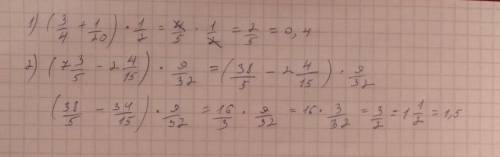 1) (3/4 + 1/20) · 1/2 = 4/5 · 1/2 = 2/5 = 0,4
2) (7 3/5 - 2 4/15) · 9/32 = (38/5 - 2 4/15) · 9/32
(38/5 - 34/15) · 9/32 = 16/3 · 9/32 = 16 · 3/32 = 3/2 = 1 1/2 = 1,5